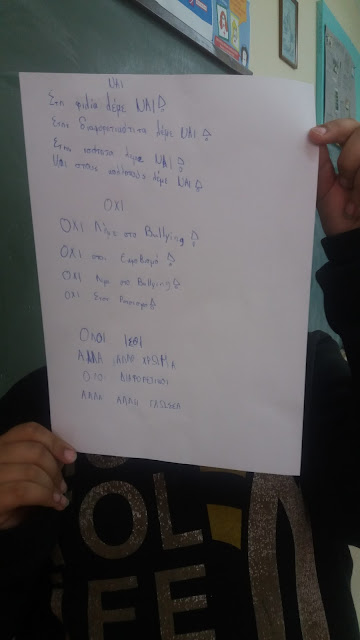 ΝΑΙ
Στη φιλία λέμε ΝΑΙ!
Στην διαφορετικότητα λέμε ΝΑΙ!
Στην λέμε ΝΑΙ!
Και στους λέμε ΝΑΙ!
ΟΧΙ
ΟΧΙ Λέμε στο Bullying!
ΟΧΙ στον!
ΟΧΙ λέμε στο Bullying!
ΟΧΙ Στον Ρατσισμό!
ΟΛΟΙ ΙΣΟΙ
ΑΛΛΑ ΑΛΛΟ ΧΡΩΜΑ
ΟΛΟΙ ΔΙΑΦΟΡΕΤΙΚΟΙ
ΑΛΛΑ ΑΛΛΗ ΓΛΩΣΣΑ
OL
FE